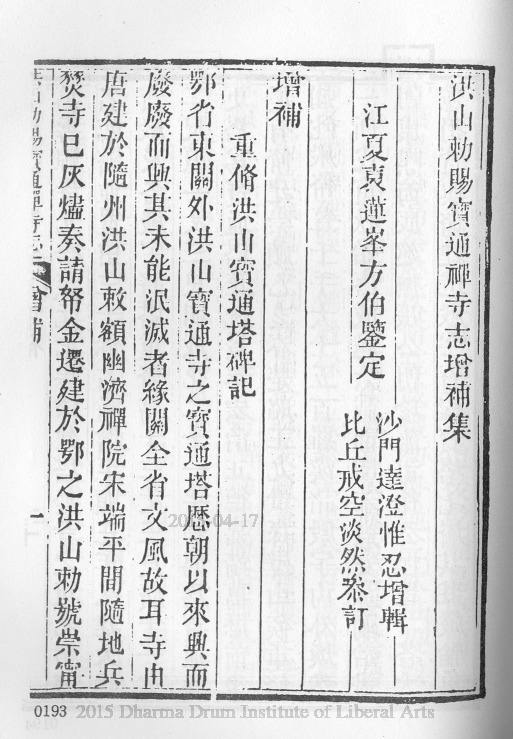 洪山勅賜寳通禪寺志增補集
江夏袁蓮峯方伯鑒定
沙門達澄惟忍增輯
比丘戒空淡然叅訂
增補
重脩洪山寳通塔碑記
鄂省東關外洪山寳通寺之寳通塔歷朝以來興而
廢廢而興其未能泯滅者緣關全省文風故耳寺由
唐建於隨州洪山敕額幽濟禪院宋端平間隨地兵
燹寺已灰燼奏請帑金遷建於鄂之洪山勅號崇甯
洪山勅賜寳通禪寺志 增補
一
2015-04-17
0193 2015 Dharma Drum Institute of Liberal Arts